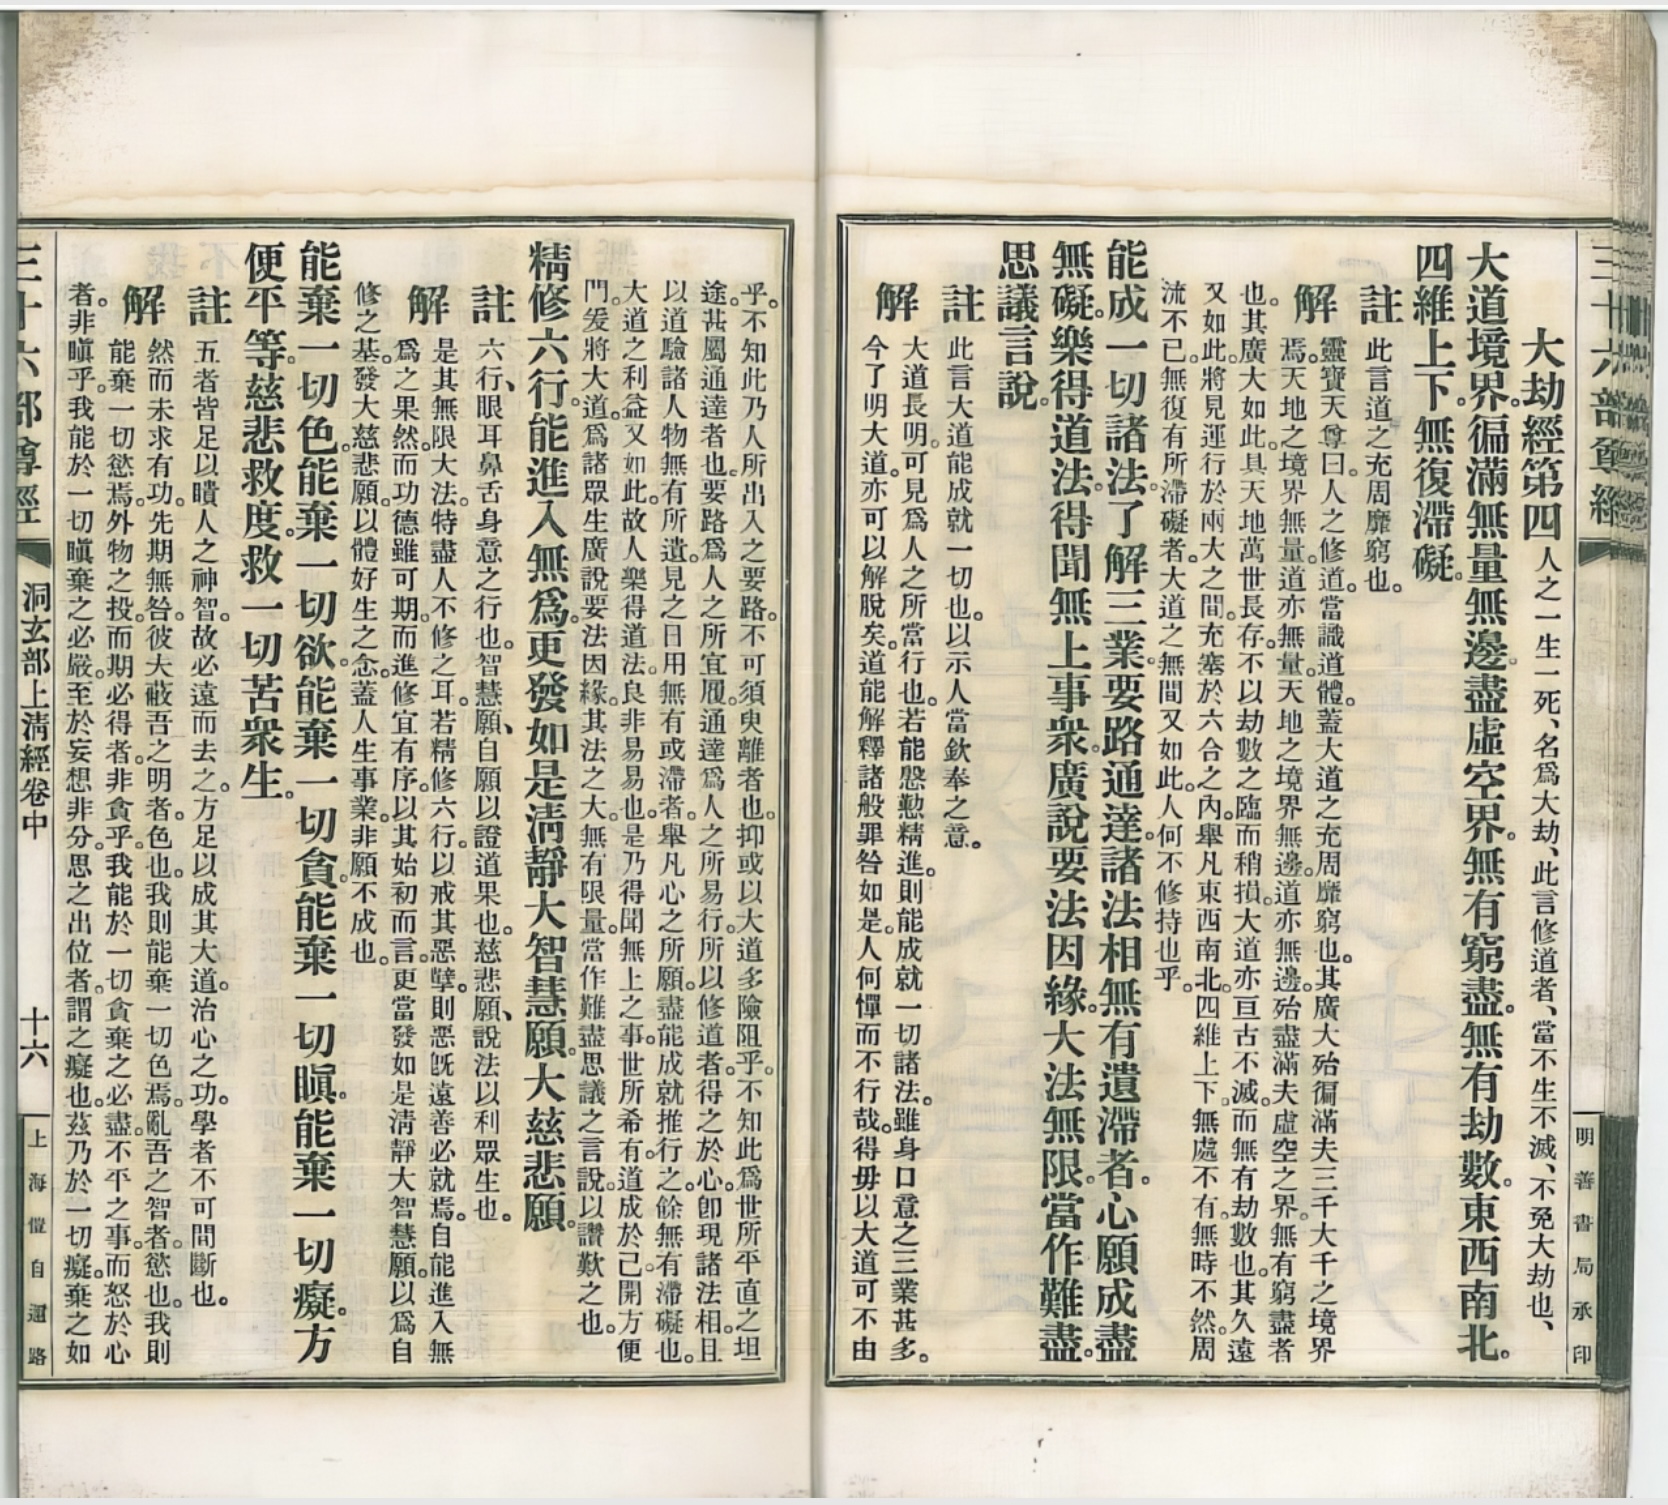 三十六部尊經
明善書局承印
大劫經第四 人之一生一死、名爲大劫、此言修道者、當不生不滅、不免大劫也、
大道境界。徧滿無量無邊。盡虛空界。無有窮盡。無有劫數。東西南北。
四維上下。無復滯礙。
註 此言道之充周靡窮也。
解 靈寶天尊曰。人之修道。當識道體。蓋大道之充周靡窮也。其廣大殆徧滿夫三千大千之境界
焉。天地之境界無量。道亦無量。天地之境界無邊。道亦無邊。殆盡滿夫虛空之界。無有窮盡者
也。其廣大如此。且天地萬世長存。不以劫數之臨而稍損。大道亦亘古不滅。而無有劫數也。其久遠
又如此。將見運行於兩大之間。充塞於六合之內。舉凡東西南北。四維上下。無處不有。無時不然。周
流不已。無復有所滯礙者。大道之無間又如此。人何不修持也乎。
能成一切諸法。了解三業。要路通達。諸法相無有遺滯者。心願成盡
無礙。樂得道法。得聞無上事。衆廣說要法因緣。大法無限。當作難盡。
思議言說。
註 此言大道能成就一切也。以示人當欽奉之意。
解 大道長明。可見爲人之所當行也。若能慇懃精進。則能成就一切諸法。雖身口意之三業甚多。
今了明大道。亦可以解脫矣。道能解釋諸般罪咎如是。人何憚而不行哉。得毋以大道可不由
乎。不知此乃人所出入之要路。不可須臾離者也。抑或以大道多險阻乎。不知此爲世所平直之坦
途。甚屬通達者也。要路爲人之所宜履。通達爲人之所易行。所以修道者。得之於心。卽現諸法相。且
以道驗諸人物無有所遺。見之日用無有或滯者。舉凡心之所願。盡能成就推行之餘。無有滯礙也。
大道之利益又如此。故人樂得道法。良非易易也。是乃得聞無上之事。世所希有。道成於己。開方便
門。爰將大道。爲諸眾生廣說要法因緣。其法之大。無有限量。當作難盡思議之言說。以讚歎之也。
精修六行。能進入無爲。更發如是清靜大智慧願。大慈悲願。
註 六行、眼耳鼻舌身意之行也。智慧願、自願以證道果也。慈悲願、說法以利眾生也。
解 是其無限大法。特盡人不修之耳。若精修六行。以戒其惡孽。則惡旣遠善必就焉。自能進入無
爲之果。然而功德雖可期。而進修宜有序。以其始初而言。更當發如是清靜大智慧願。以爲自
修之基。發大慈悲願。以體好生之念。蓋人生事業。非願不成也。
能棄一切色。能棄一切欲。能棄一切貪。能棄一切瞋。能棄一切癡。方
便平等。慈悲救度。救一切苦衆生。
註 五者皆足以瞆人之神智。故必遠而去之。方足以成其大道。治心之功。學者不可間斷也。
解 然而未求有功。先期無咎。彼夫蔽吾之明者。色也。我則能棄一切色焉。亂吾之智者。慾也。我則
能棄一切慾焉。外物之投。而期必得者。非貪乎。我能於一切貪棄之必盡。不平之事。而怒於心
者。非瞋乎。我能於一切瞋棄之必嚴。至於妄想非分。思之出位者。謂之癡也。茲乃於一切癡。棄之如
三十六部尊經
洞玄部上清經卷中
十六
上海愷自邇路